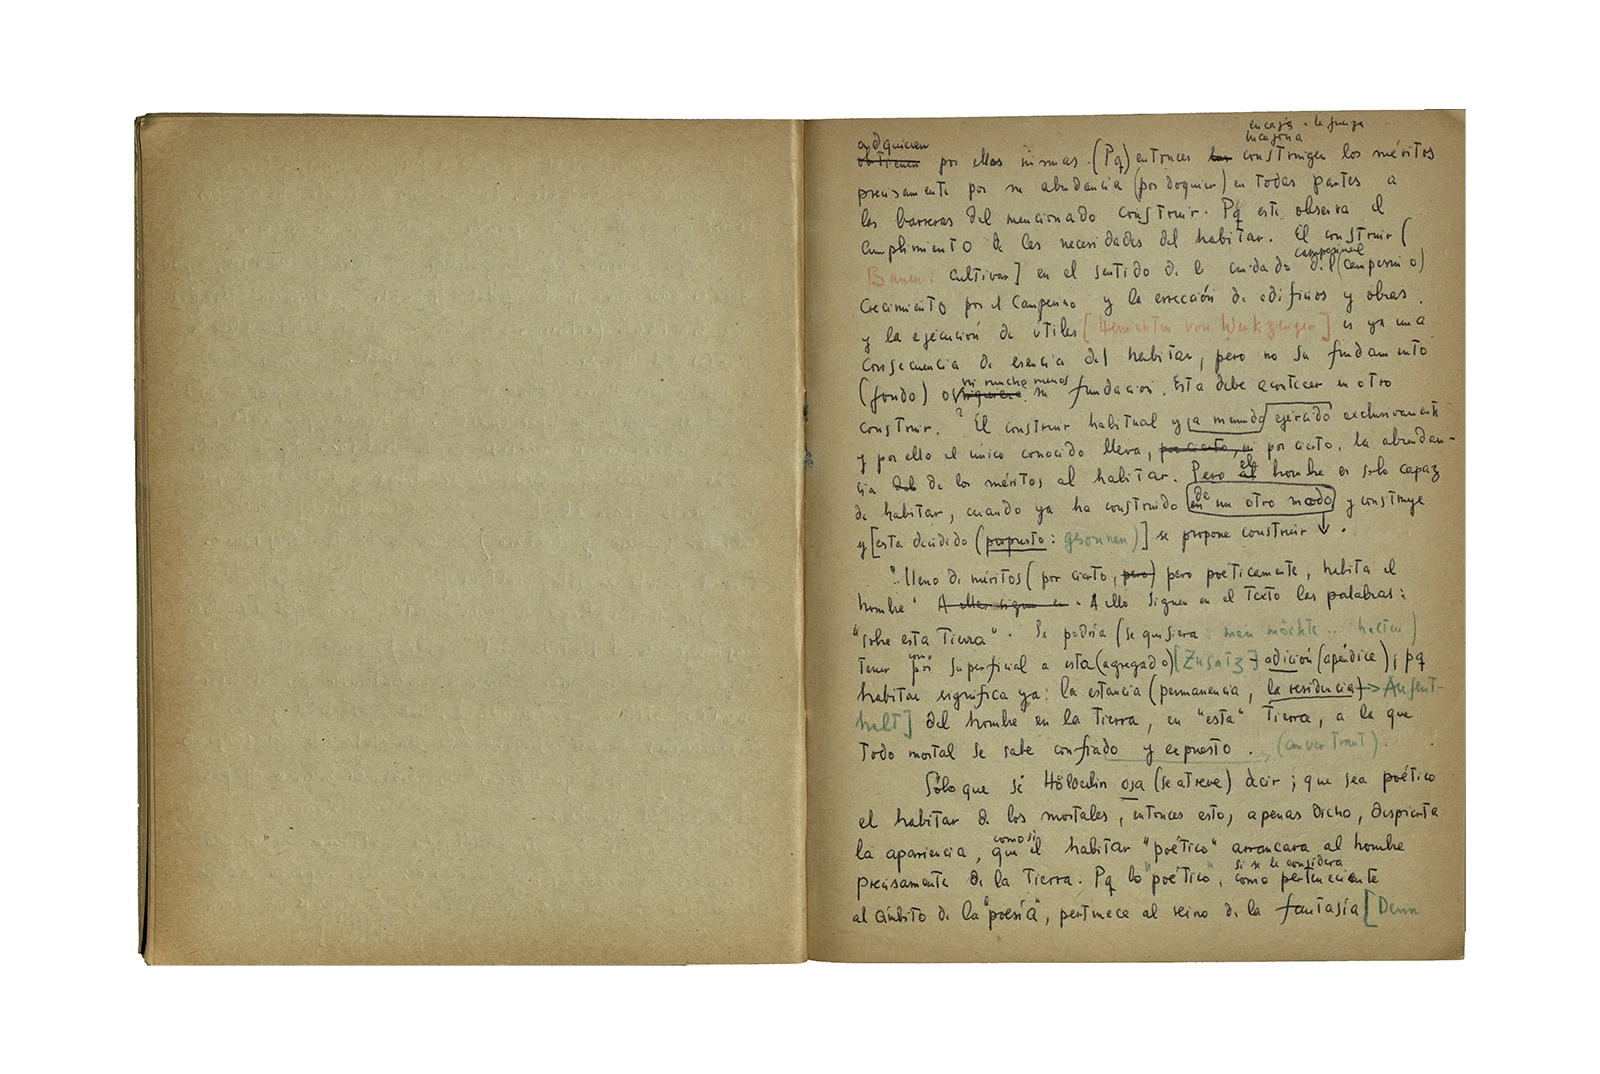 encaja · la fuerza
adquieren incagina
obtienen por ellas mismas. (Pq) entonces los construigen los méritos
precisamente por su abundancia (por doquier) en todas partes a
las barreras del mencionado construir. Pq este observa el
cumplimiento de las necesidades del habitar. El construir (
campesinal
Bauen: cultivar] en el sentido de el cuidado del (campesino)
crecimiento por el campesino y la erección de edificios y obras.
y la ejecución de útiles [Herrichten von Werkzeugen] es ya una
consecuencia de esencia del habitar, pero no su fundamento
ni mucho menos
(fondo) o siquiera su fundación. Esta debe acontecer en otro
construir. ? El construir habitual y a menudo ejercido exclusivamente
y por ello el único conocido lleva, por cierto, por cierto, la abundan-
cia del de los méritos al habitar. Pero el hombre es solo capaz
de habitar, cuando ya ha construido de un otro modo y construye
y [esta decidido (propuesto: gesonnen)] se propone construir .
"lleno de méritos (por cierto, pero) pero poéticamente, habita el
hombre" A ellas siguen en . A ello siguen en el texto las palabras:
"sobre esta Tierra". Se podría (se quisiera : man möchte .. halten)
como
tener por superficial a esta (agregado) [Zusatz] adición (apéndice); pq
habitar significa ya: la estancia (permanencia, la residencia) → Aufent-
halt] del hombre en la Tierra, en "esta" Tierra, a la que
todo mortal se sabe confiado y expuesto. (anvertraut).
Sólo que si Hölderlin osa (se atreve) decir; que sea poético
el habitar de los mortales, entonces esto, apenas dicho, despierta
como si
la apariencia, que el habitar "poético" arrancara al hombre
si se le considera
precisamente de la Tierra. Pq lo "poético", como perteneciente
al ámbito de la "poesía", pertenece al reino de la fantasía [Denn